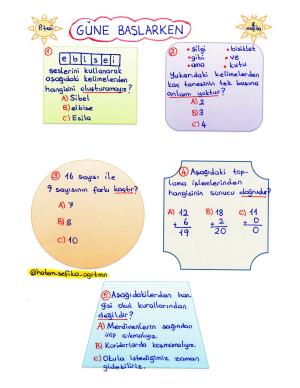 P.tesi
GÜNE BAŞLARKEN
2. sınıflar
1
e b l s e i
seslerini kullanarak
aşağıdaki kelimelerden
hangisini oluşturamayız?
A) Sibel
B) elbise
C) Esila
2
• silgi • bisiklet
• gibi • ve
• ama • kutu
Yukarıdaki kelimelerden
kaç tanesinin tek başına
anlamı yoktur?
A) 2
B) 3
C) 4
3 16 sayısı ile
9 sayısının farkı kaçtır?
A) 7
B) 8
C) 10
4 Aşağıdaki top-
lama işlemlerinden
hangisinin sonucu doğrudur?
A) 12 B) 18 C) 11
+ 6 + 2 + 0
19 20 0
@hatem_sefika_ogrtmn
5 Aşağıdakilerden han-
gisi okul kurallarından
değildir?
A) Merdivenlerin sağından
inip çıkmalıyız.
B) Koridorlarda koşmamalıyız.
C) Okula istediğimiz zaman
gidebiliriz.